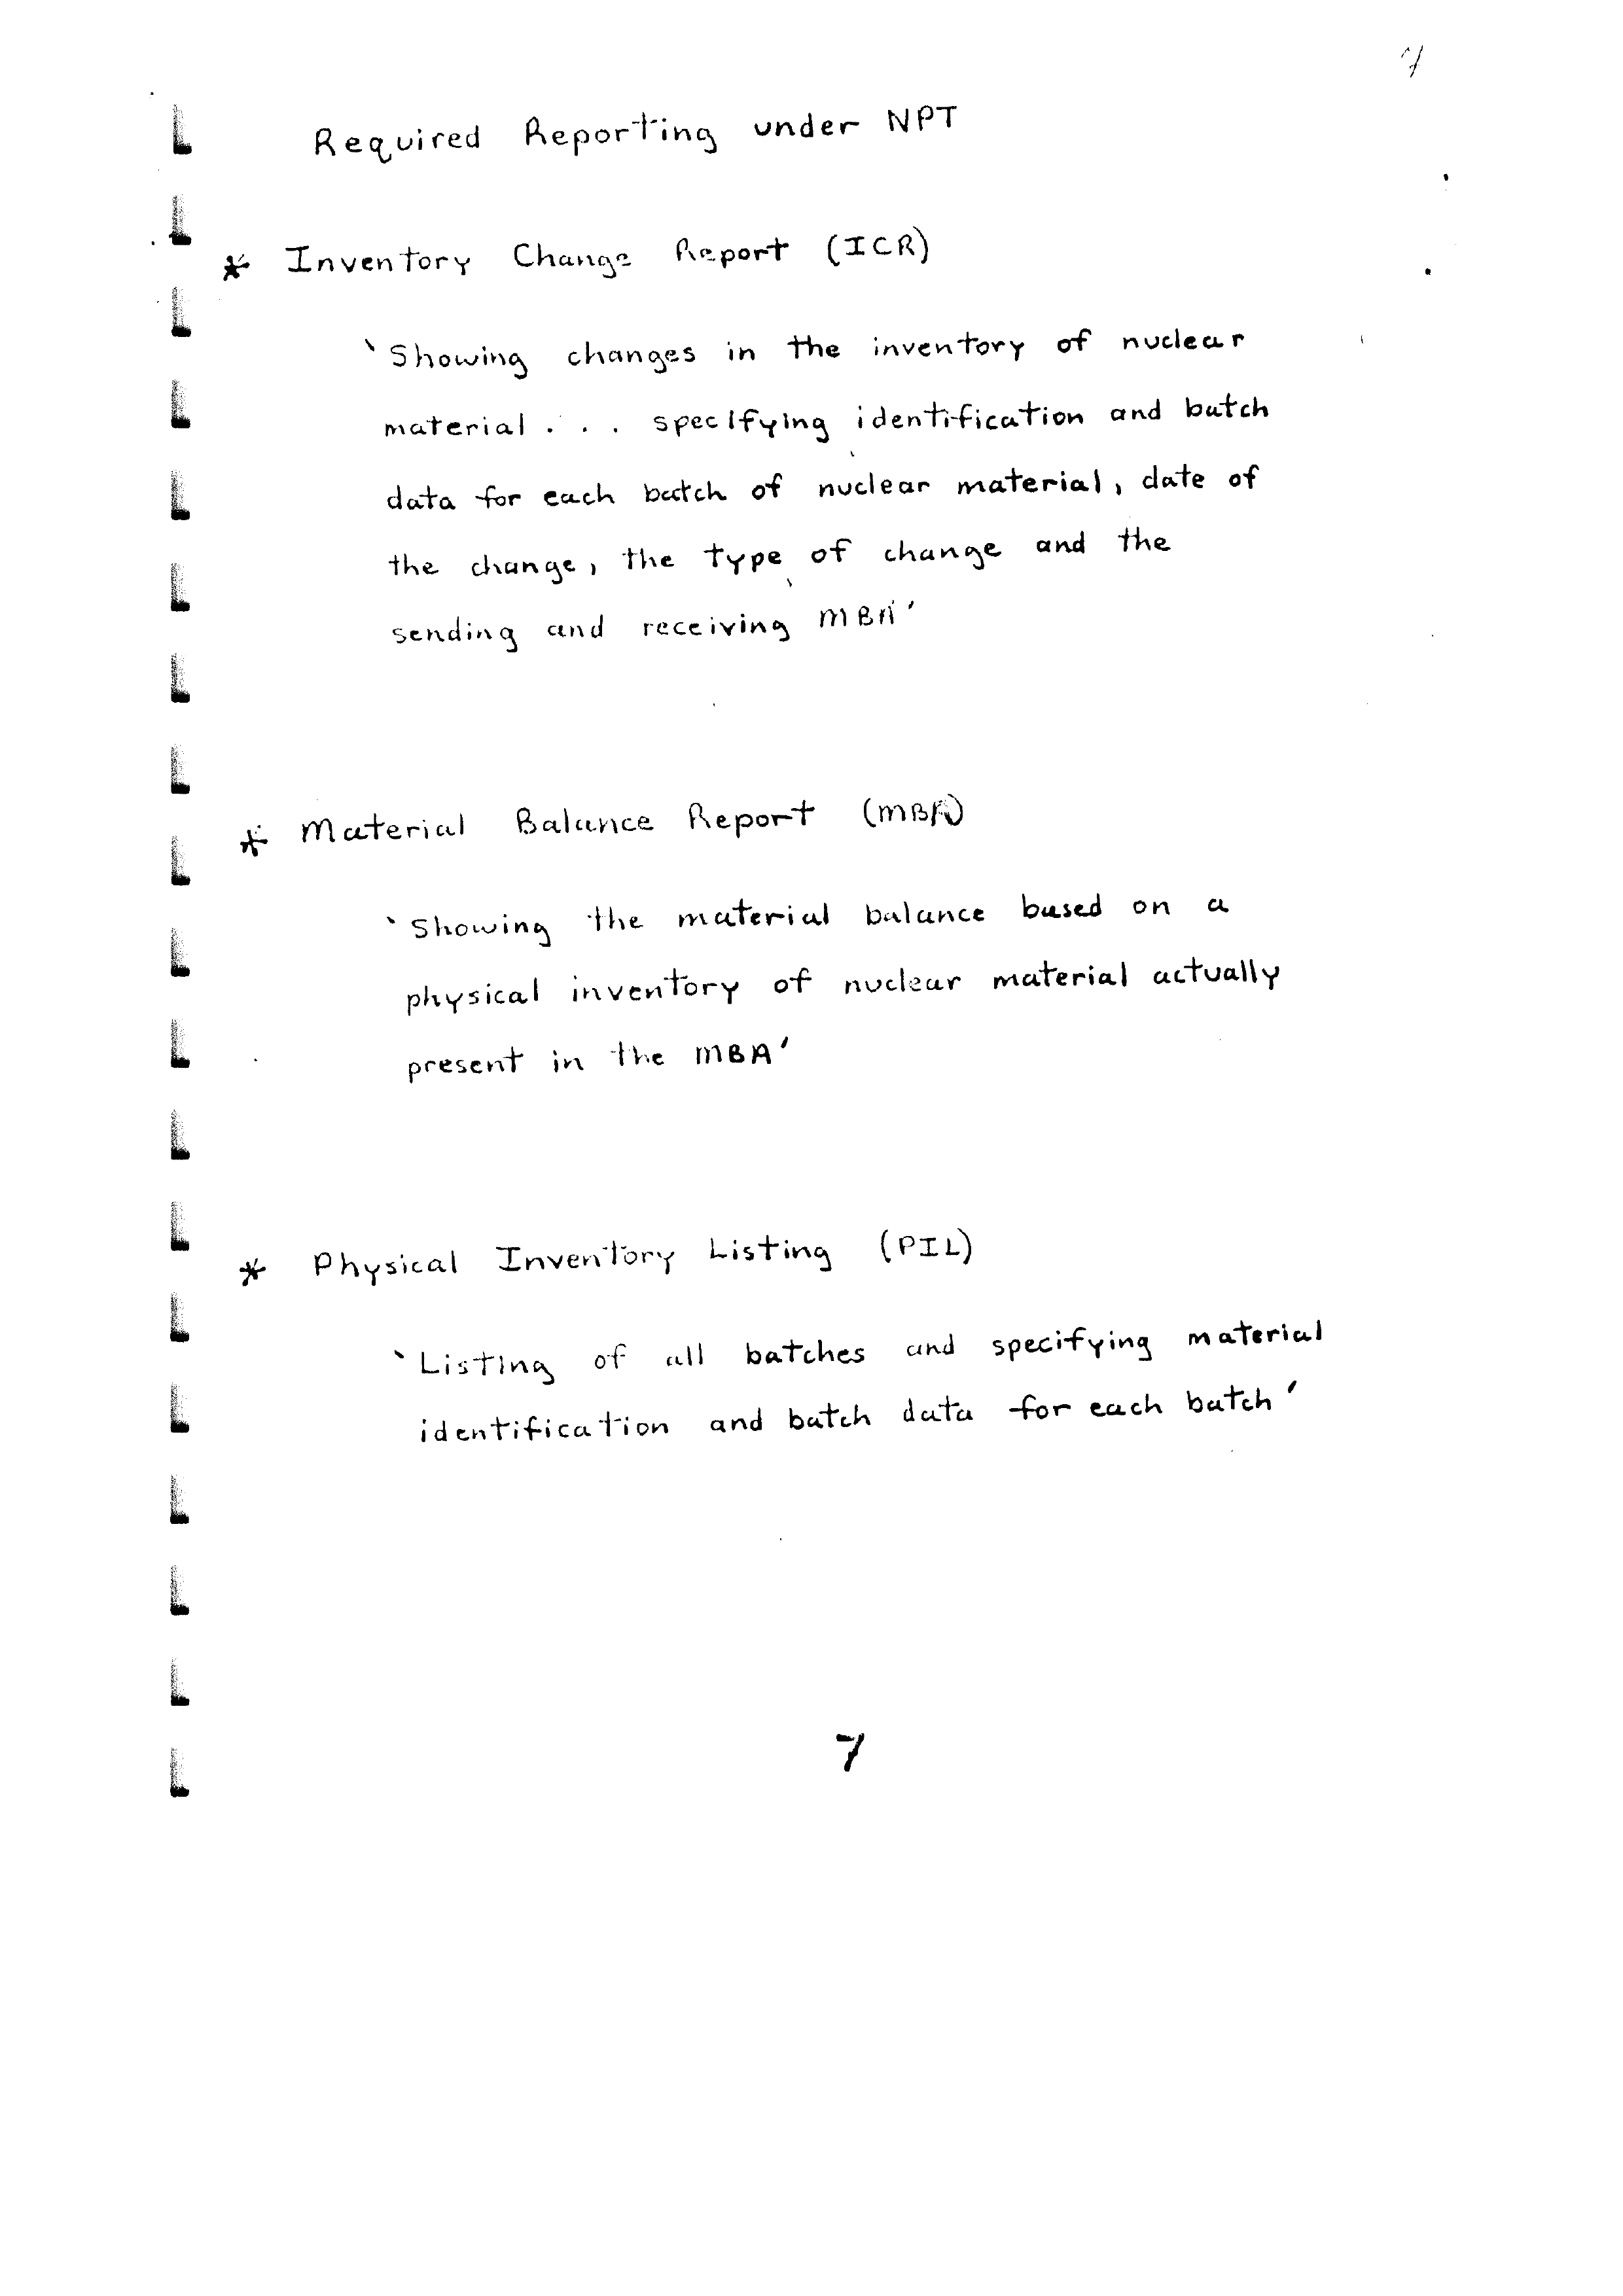 7
Required Reporting under NPT
* Inventory Change Report (ICR)
`Showing changes in the inventory of nuclear
material . . . specifying identification and batch
data for each batch of nuclear material, date of
the change, the type of change and the
sending and receiving MBA'
* Material Balance Report (MBR)
`Showing the material balance based on a
physical inventory of nuclear material actually
present in the MBA'
* Physical Inventory Listing (PIL)
`Listing of all batches and specifying material
identification and batch data for each batch'
7